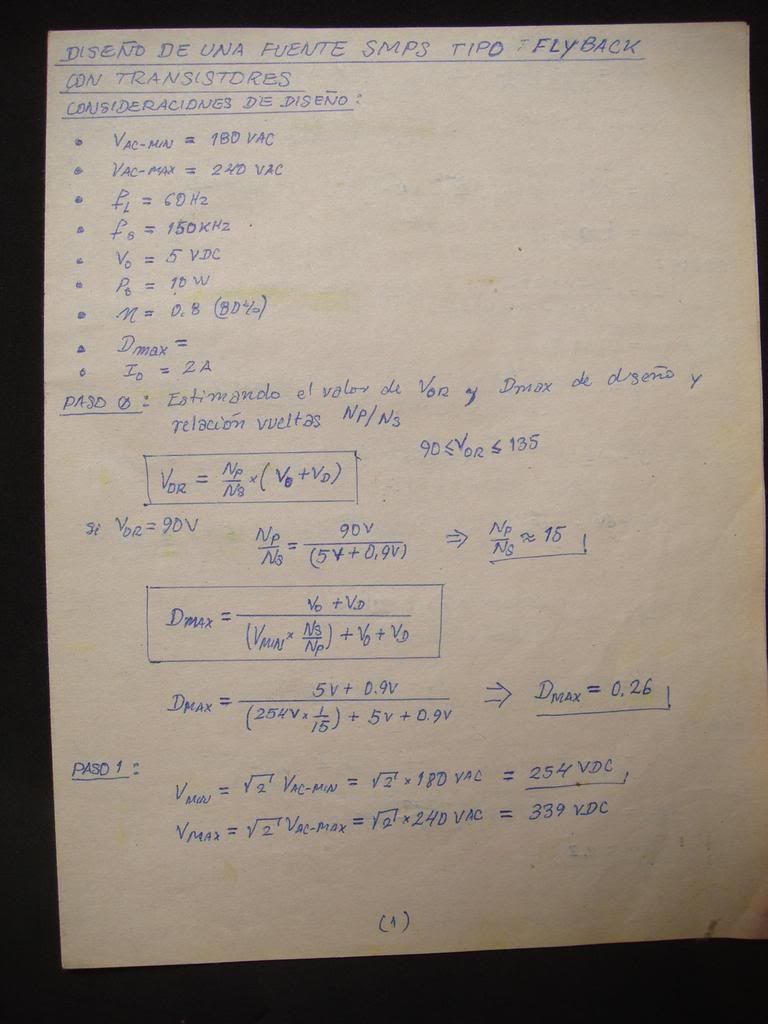 DISEÑO DE UNA FUENTE SMPS TIPO : FLYBACK
CON TRANSISTORES
CONSIDERACIONES DE DISEÑO:
• VAC-MIN = 180 VAC
• VAC-MAX = 240 VAC
• fL = 60Hz
• fs = 150KHz
• Vo = 5 VDC
• Po = 10 W
• η = 0.8 (80%)
• Dmax =
• Io = 2 A
PASO 0: Estimando el valor de VOR y Dmax de diseño y
relación vueltas NP/NS
90 ≤ VOR ≤ 135
VOR = NP/NS × (VO + VD)
si VOR = 90V NP/NS = 90V/(5V + 0.9V) ⇒ NP/NS ≈ 15
DMAX = (VO + VD)/((VMIN × NS/NP) + VO + VD)
DMAX = (5V + 0.9V)/((254V × 1/15) + 5V + 0.9V) ⇒ DMAX = 0.26
PASO 1: VMIN = √2 VAC-MIN = √2 × 180 VAC = 254 VDC
VMAX = √2 VAC-MAX = √2 × 240 VAC = 339 VDC
(1)